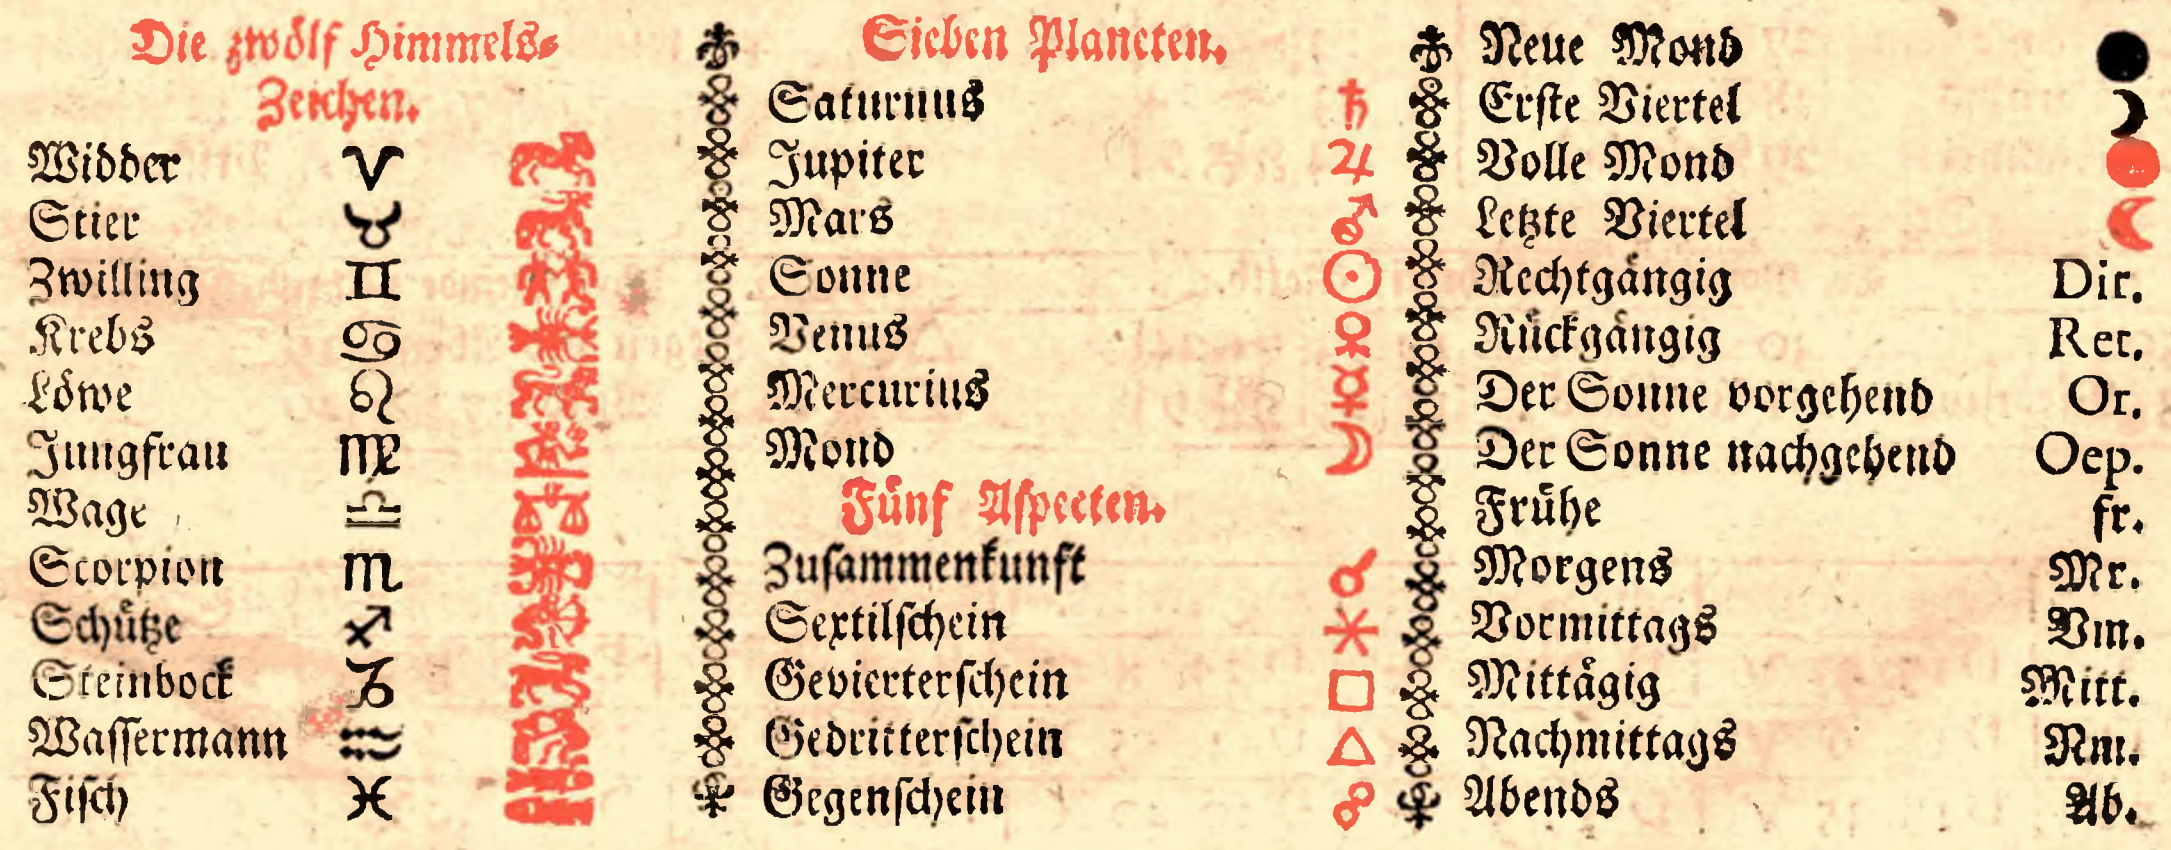 Die zwölf Himmels-
Zeichen.
Widder ♈
Stier ♉
Zwilling ♊
Krebs ♋
Löwe ♌
Jungfrau ♍
Wage ♎
Scorpion ♏
Schütze ♐
Steinbock ♑
Wassermann ♒
Fisch ♓
Sieben Planeten.
Saturnus ♄
Jupiter ♃
Mars ♂
Sonne ☉
Venus ♀
Mercurius ☿
Mond ☽
Fünf Aspecten.
Zusammenkunft ☌
Sextilschein ⚹
Gevierterschein □
Gedritterschein △
Gegenschein ☍
Neue Mond ●
Erste Viertel ☽
Volle Mond ●
Letzte Viertel ☾
Rechtgängig Dir.
Rückgängig Ret.
Der Sonne vorgehend Or.
Der Sonne nachgehend Oep.
Frühe fr.
Morgens Mr.
Vormittags Vm.
Mittägig Mitt.
Nachmittags Nm.
Abends Ab.